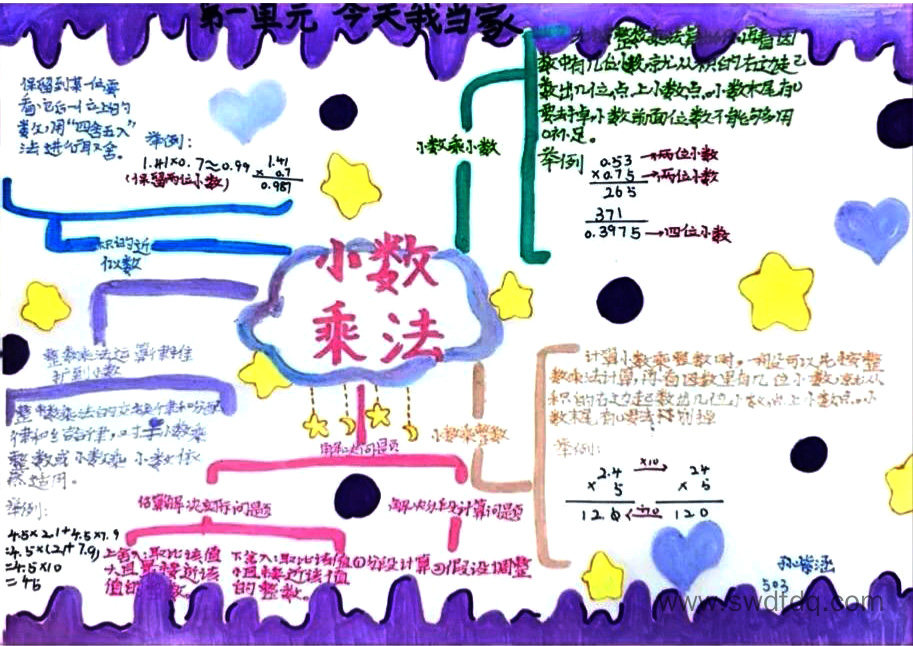 第一单元 今天我当家
保留到某一位要
看它后一位上的
数,用"四舍五入"
法进行取舍。
举例:
1.41×0.7≈0.99
(保留两位小数)
1.41
× 0.7
0.987
积的近
似数
小数乘小数
数中有几位小数,就从积的右边起
数出几位,点上小数点。小数末尾有0
要去掉,小数前面位数不能够,用
0补足。
举例
0.53→两位小数
×0.75→两位小数
265
371
0.3975→四位小数
小数
乘法
整数乘法运算律推
广到小数
整数乘法的交换律和分配
律和结合律,对于小数乘
整数或小数乘小数依
然适用。
举例:
4.5×2.1+4.5×7.9
=4.5×(2.1+7.9)
=4.5×10
=45
解决问题
估算解决实际问题
上舍入:取比该值
大且最接近该
值的整数。
下舍入:取比该值
小且接近该值
的整数。
解决分段计算问题
①分段计算②假设调整
小数乘整数
计算小数乘整数时,一般可以先按整
数乘法计算,再看因数里有几位小数,就从
积的右边起数出几位,点上小数点。小
数末尾有0要去掉
举例:
2.4 ×10→ 24
× 5 × 5
12.0 ←÷10 120
503
www.swdtdq.com